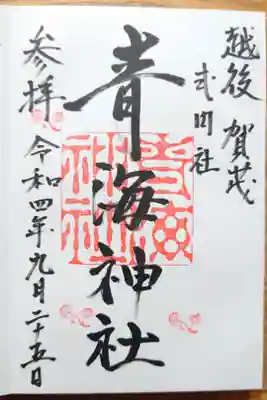 越後 賀茂
式内社
青海神社
参拝
令和四年九月二十五日